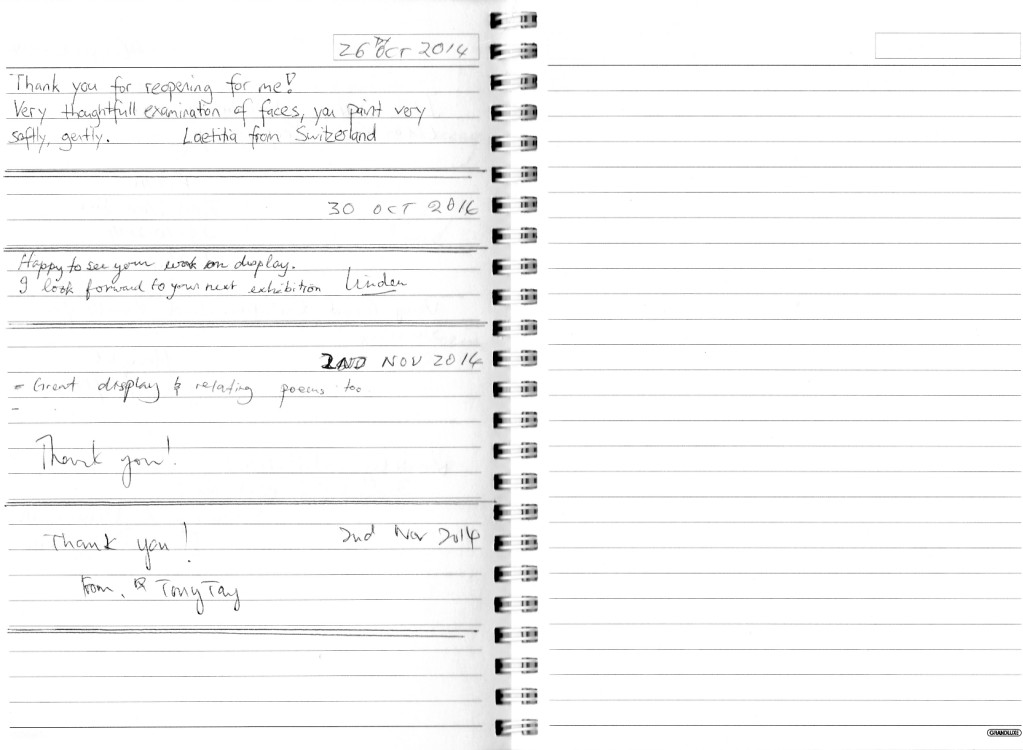 26 Oct 2014
Thank you for reopening for me!
Very thoughtfull examination of faces, you paint very
softly, gently. Laetitia from Switzerland
30 OCT 2014
Happy to see your work on display.
I look forward to your next exhibition Linden
2ND NOV 2014
- Great display & relating poems too
-
Thank you!
2nd Nov 2014
Thank you!
From, Tony Tay
GRANDLUXE